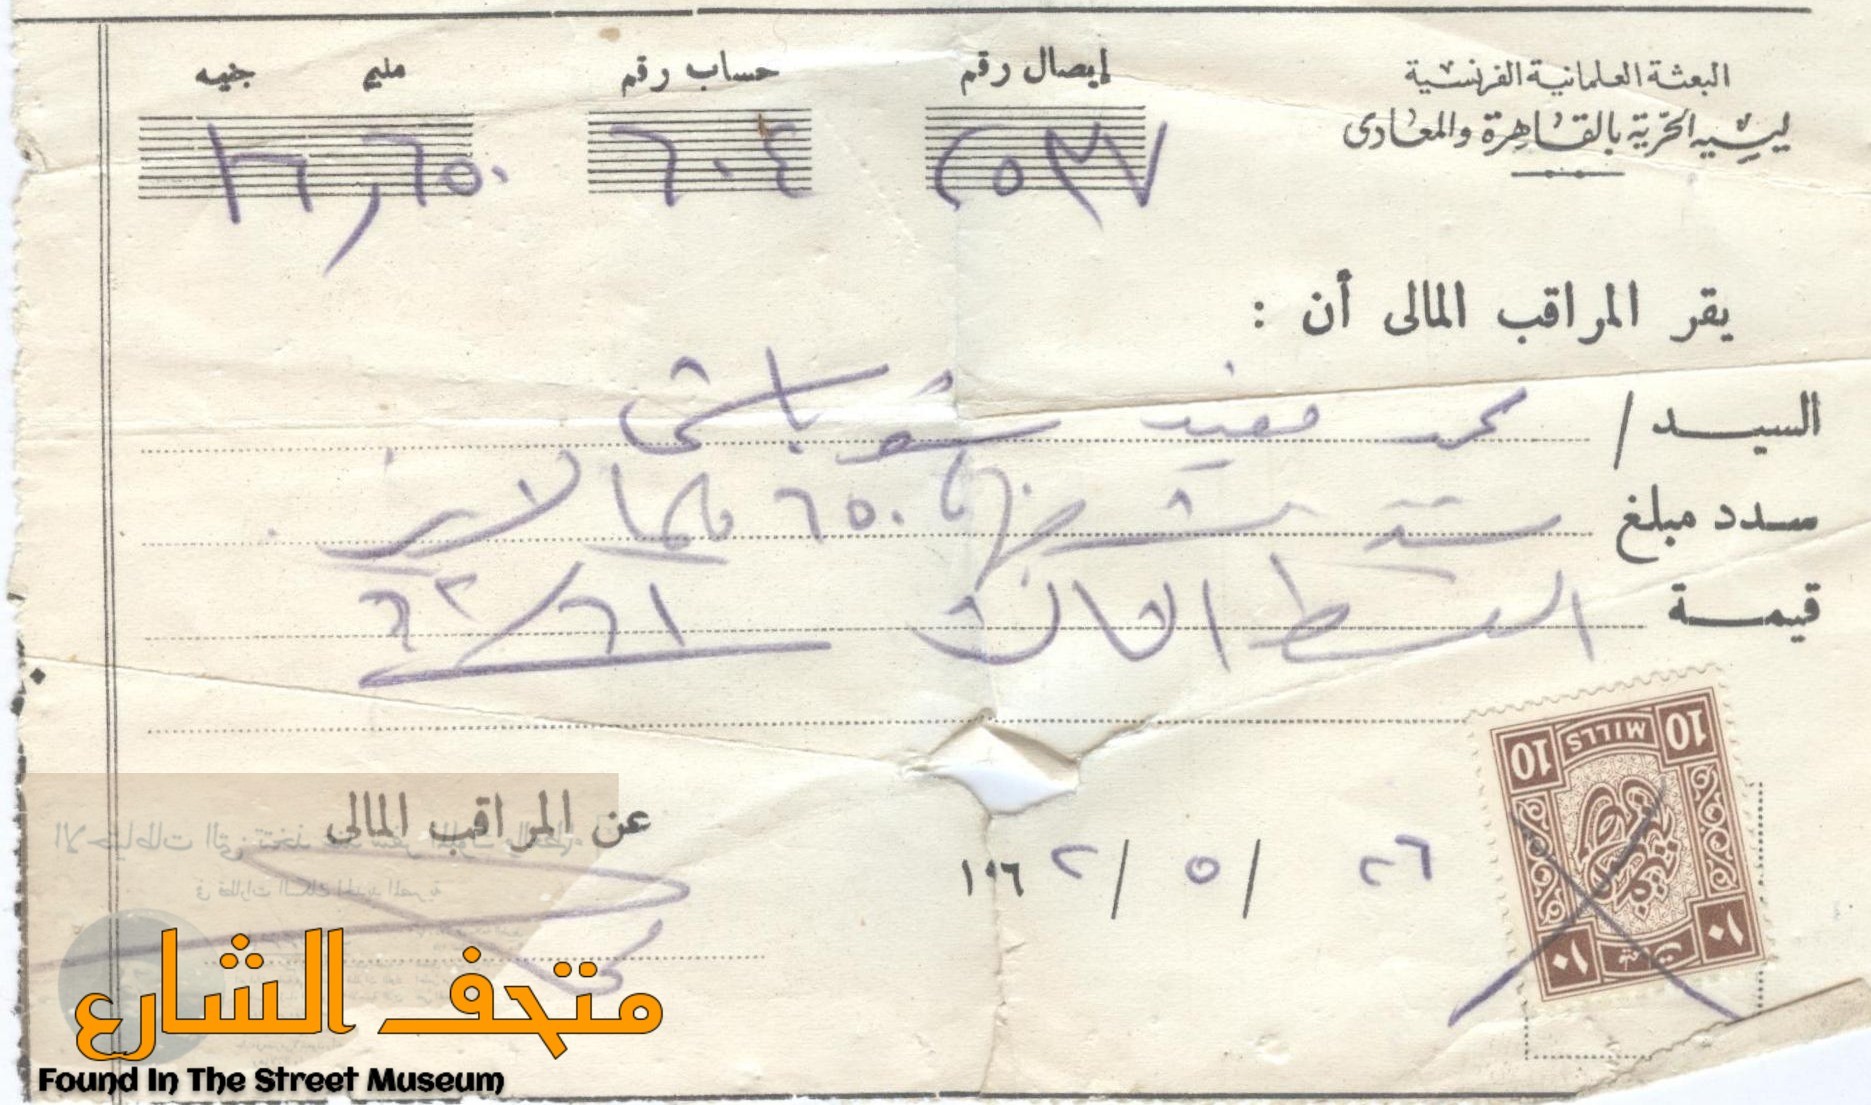 البعثة العلمانية الفرنسية
ليسيه الحرية بالقاهرة والمعادى
إيصال رقم
٢٥٣٧
حساب رقم
٦٠٤
مليم جنيه
١٦,٦٥٠
يقر المراقب المالى أن :
السيد / محمد مفيد
سدد مبلغ ستة عشر جنيها ٦٥٠ مليما لاغير
قيمة القسط الثالث ٦١/٦٢
٢٦ / ٥ / ١٩٦٢
عن المراقب المالى
10 MILLS 10
١٠ ١٠
متحف الشارع
Found In The Street Museum